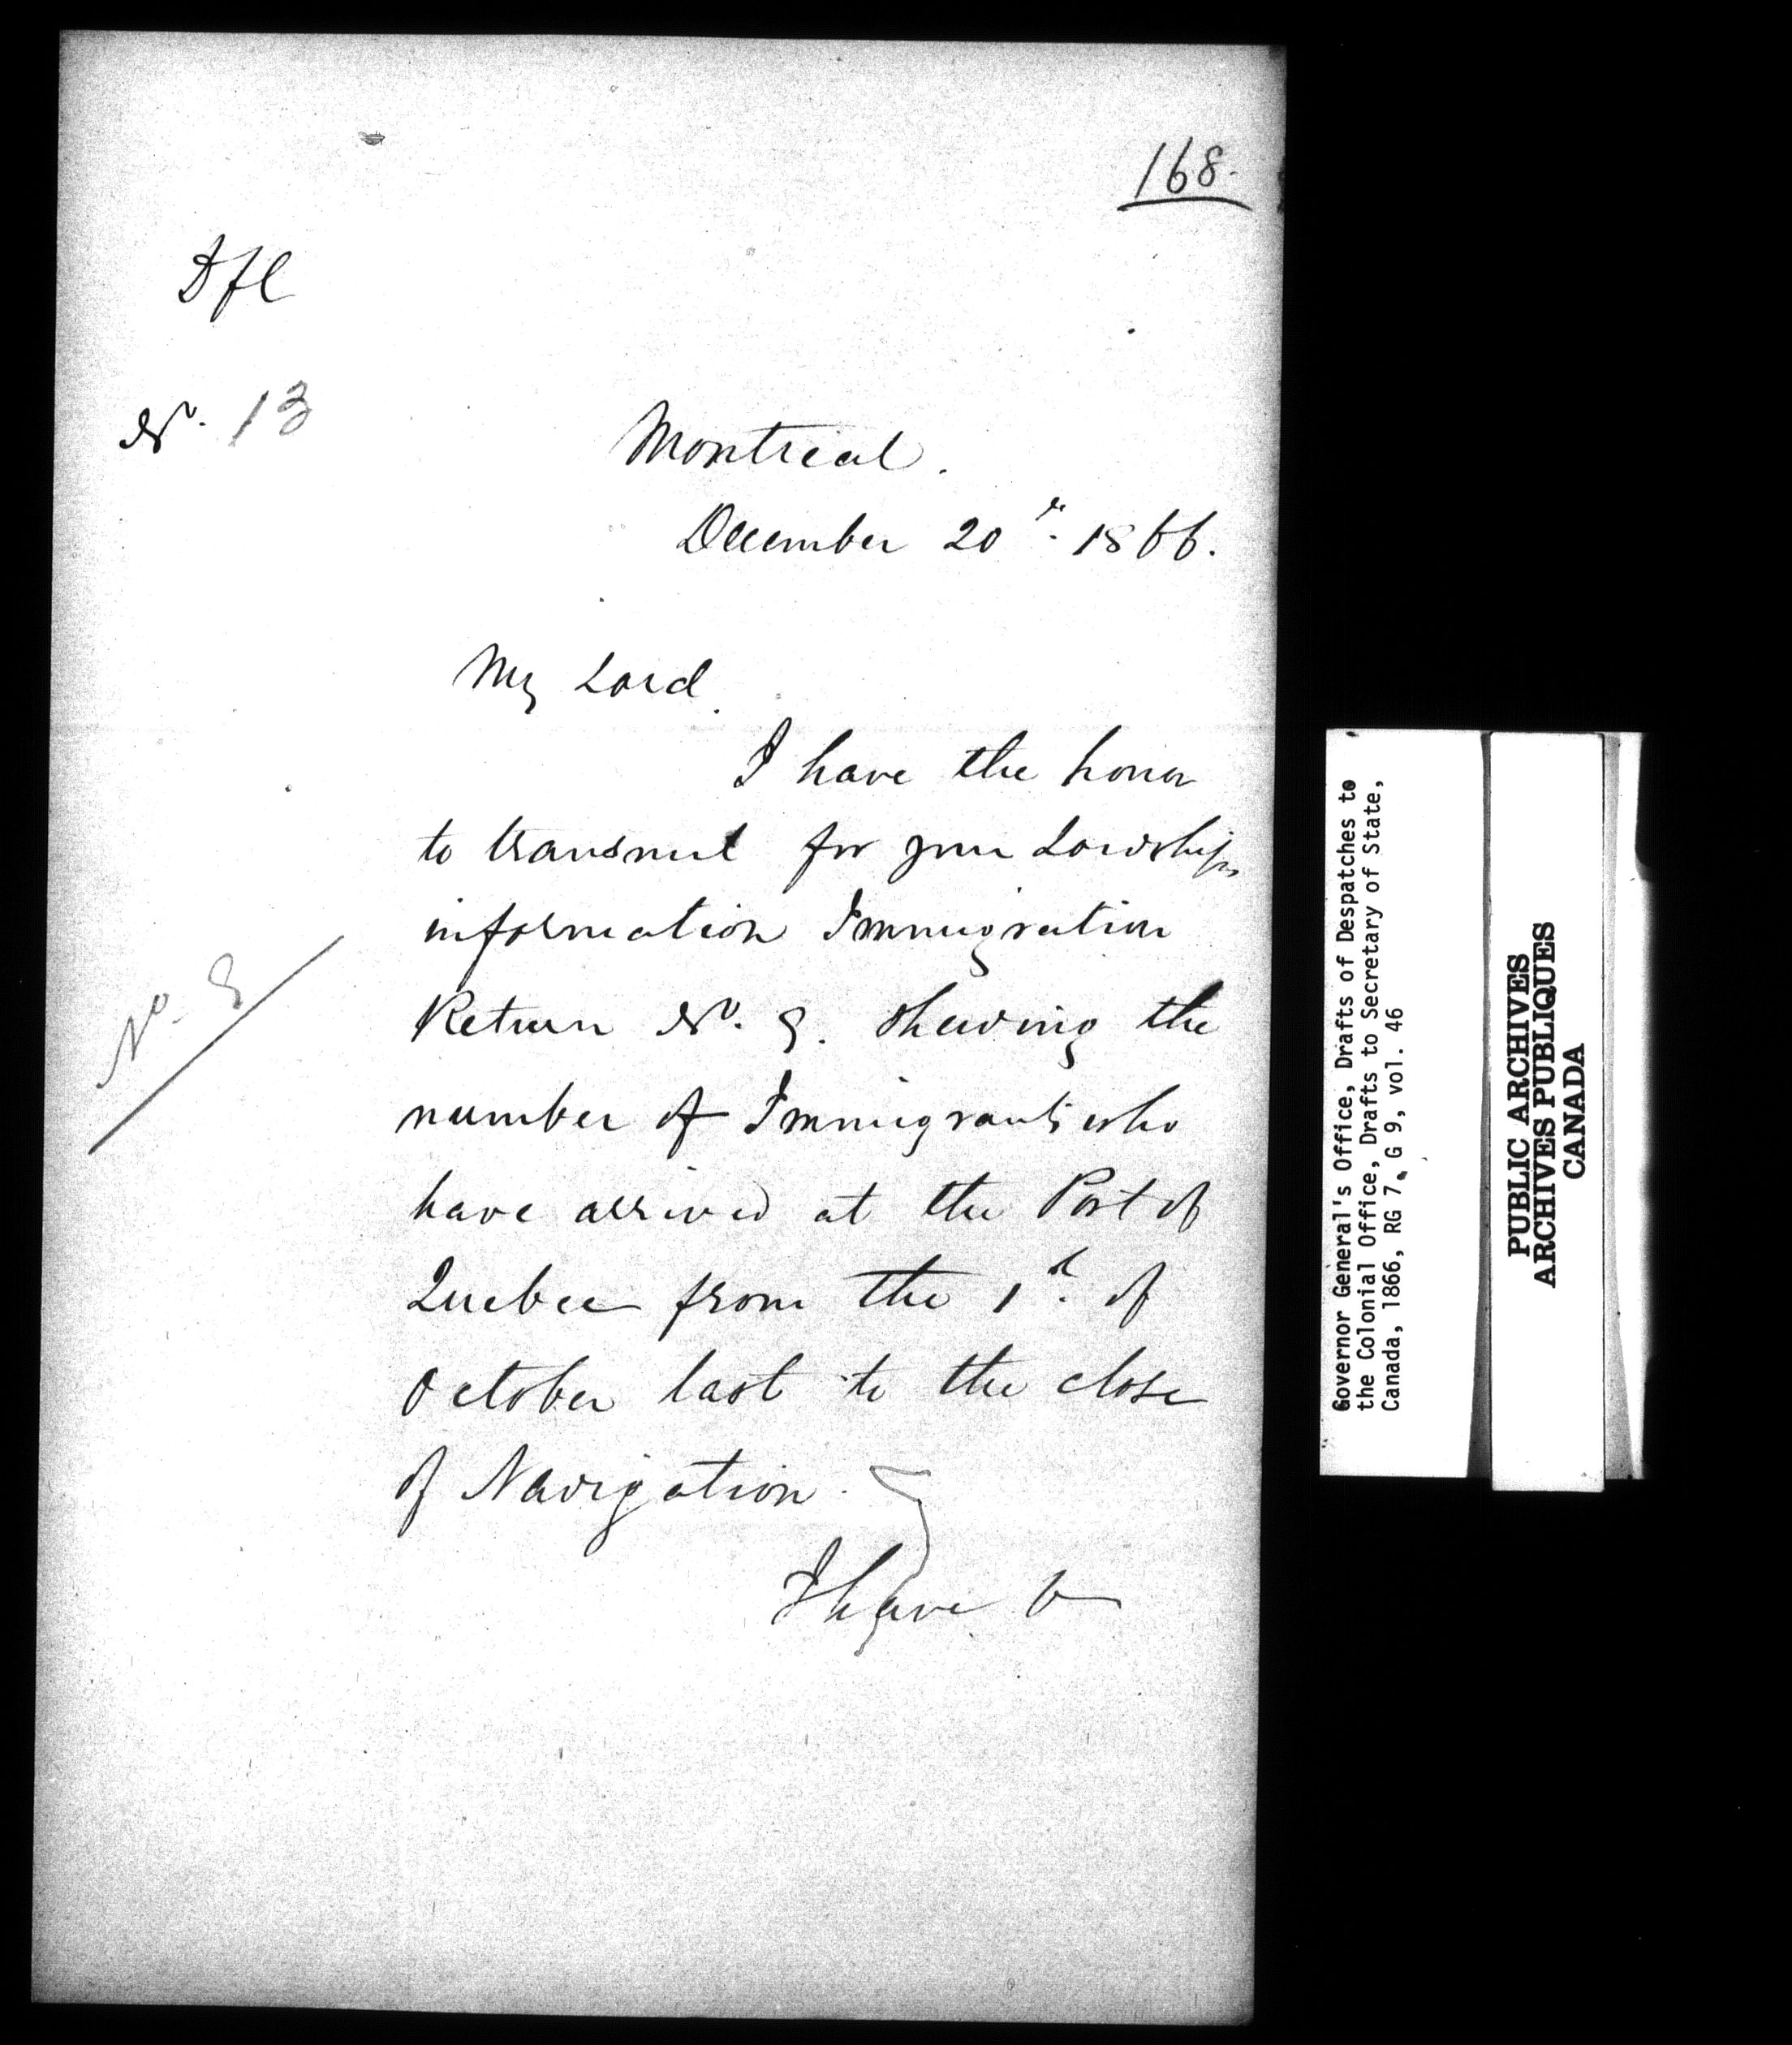 168.
Dft
No. 13
Montreal.
December 20th. 1866.
My Lord.
I have the honor
to transmit for your Lordship's
information Immigration
Return No. 8. shewing the
No. 8
number of Immigrants who
have arrived at the Port of
Quebec from the 1st. of
October last to the close
of Navigation.
I have &
Governor General's Office, Drafts of Despatches to
the Colonial Office, Drafts to Secretary of State,
Canada, 1866, RG 7, G 9, vol. 46
PUBLIC ARCHIVES
ARCHIVES PUBLIQUES
CANADA